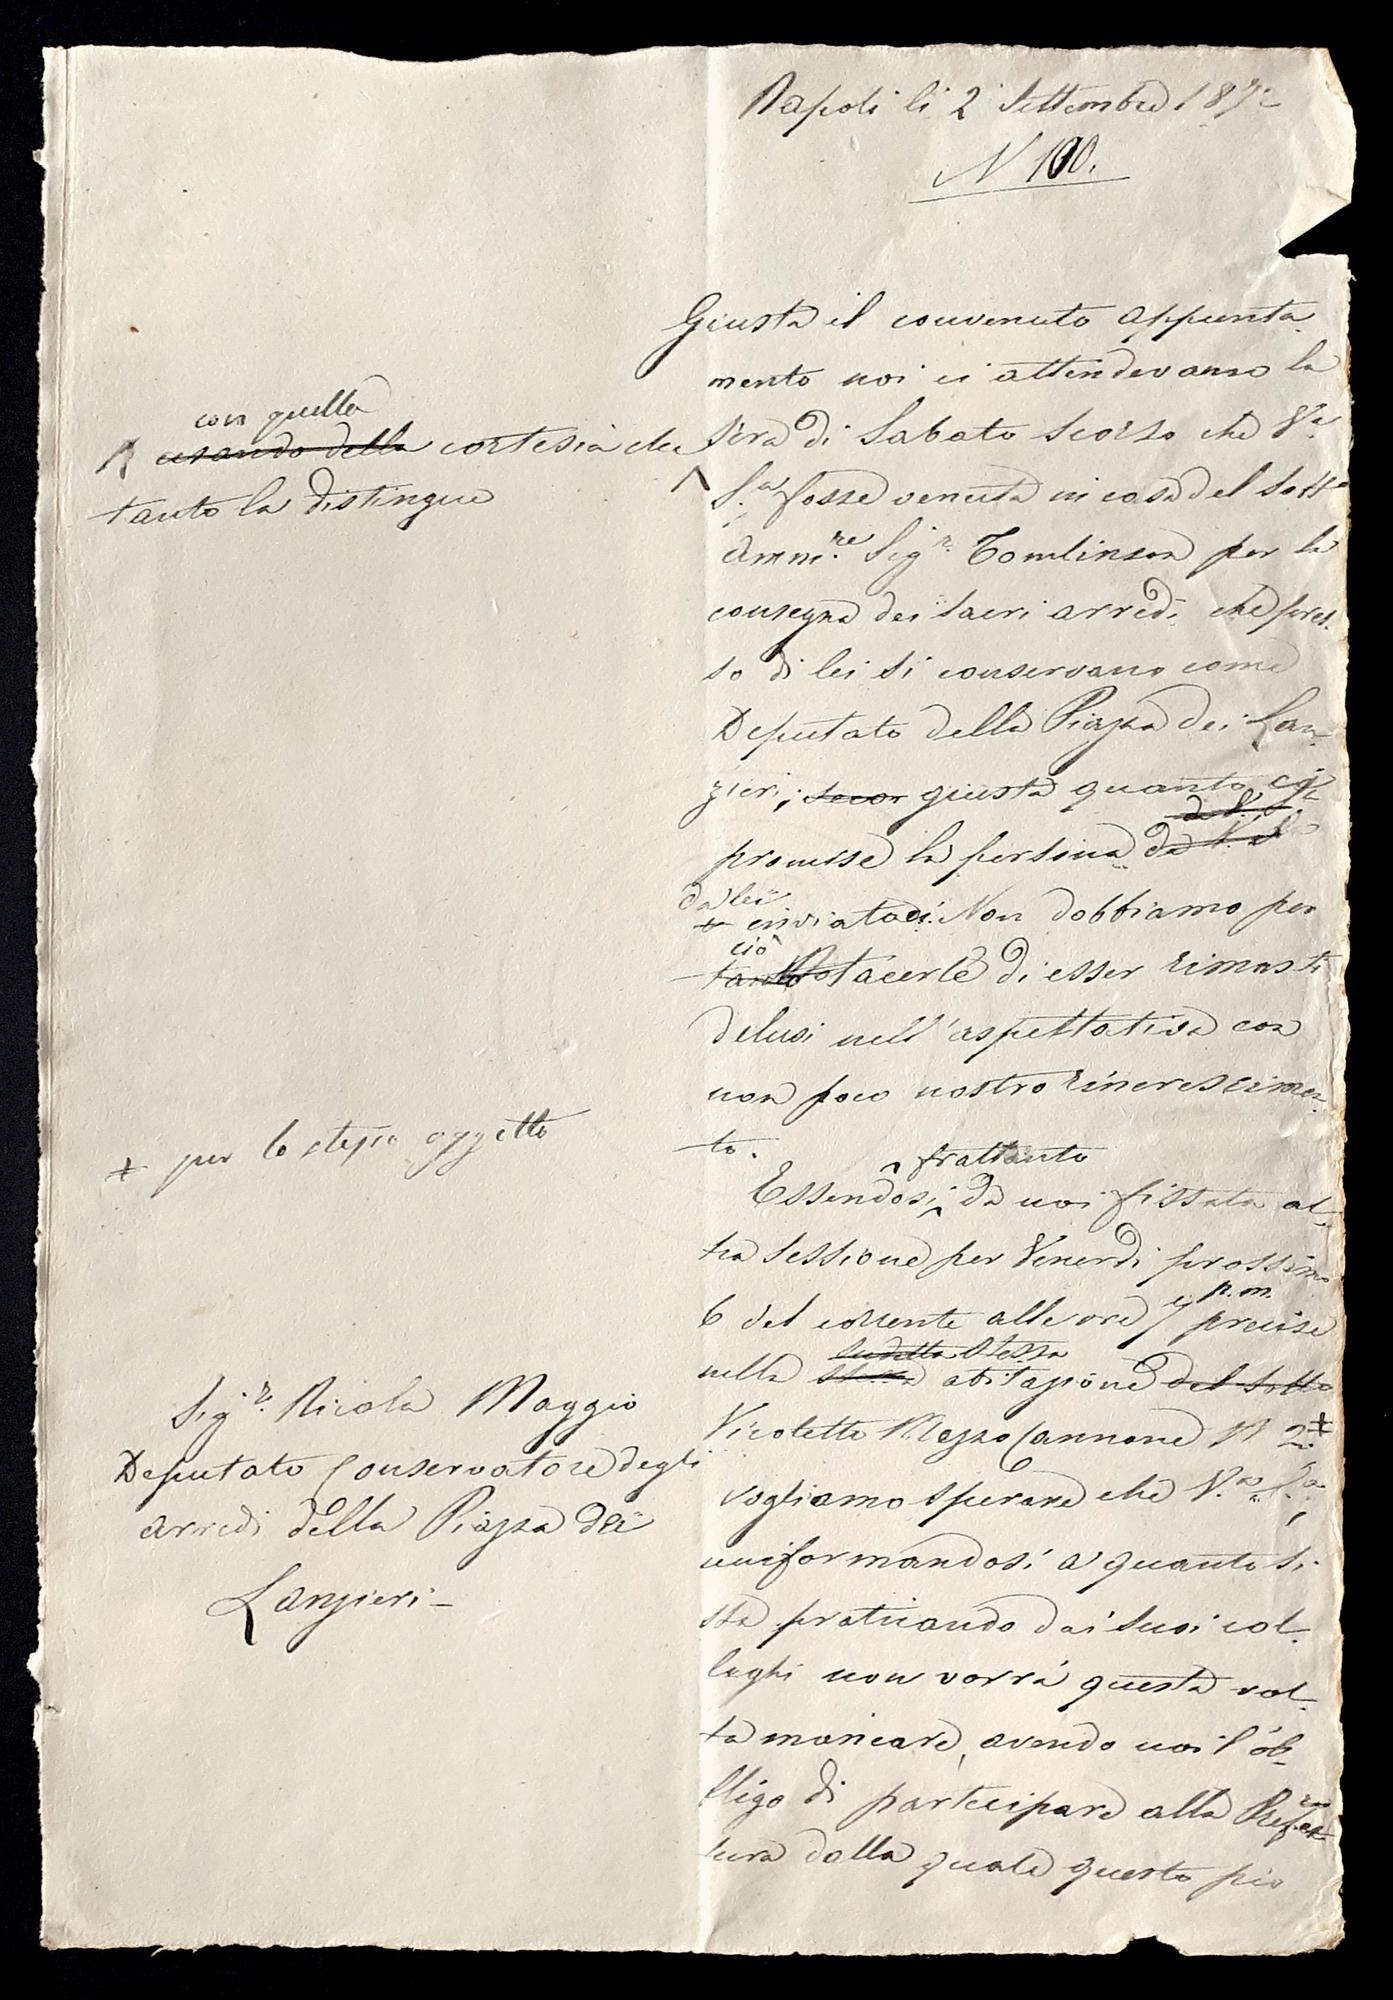 Napoli li 2 Settembre 1872
N 100.
Giusta il convenuto appunta
mento noi ci attendevamo la
sera di Sabato scorso che V.a
S.a fosse venuta in casa del Sotto
Amm.re Sig.r Tomlinson per la
consegna dei sacri arredi che pres-
so di lei si conservano come
Deputato della Piazza dei Lan-
zieri, giusta quanto ci
promise la persona
da lei
inviataci. Non dobbiamo per
ciò
tacerle di esser rimasti
delusi nell'aspettativa con
non poco nostro rincrescimen-
to.
frattanto
Essendosi da noi fissata al-
tra sessione per Venerdì prossimo
p.m.
6 del corrente alle ore 7 precise
sudetta stessa
nella stessa abitazione del Sotto
Vicoletto Mezzocannone N 2 ‡
vogliamo sperare che V.a S.a
uniformandosi a quanto si
sta praticando dai suoi col-
leghi non vorrà questa vol-
ta mancare, avendo noi l'ob-
bligo di partecipare alla Prefet-
tura dalla quale questo pio
con quella
usando della cortesia che
tanto la distingue
‡ per lo stesso oggetto
Sig.r Nicola Maggio
Deputato Conservatore degli
arredi della Piazza dei
Lanzieri -